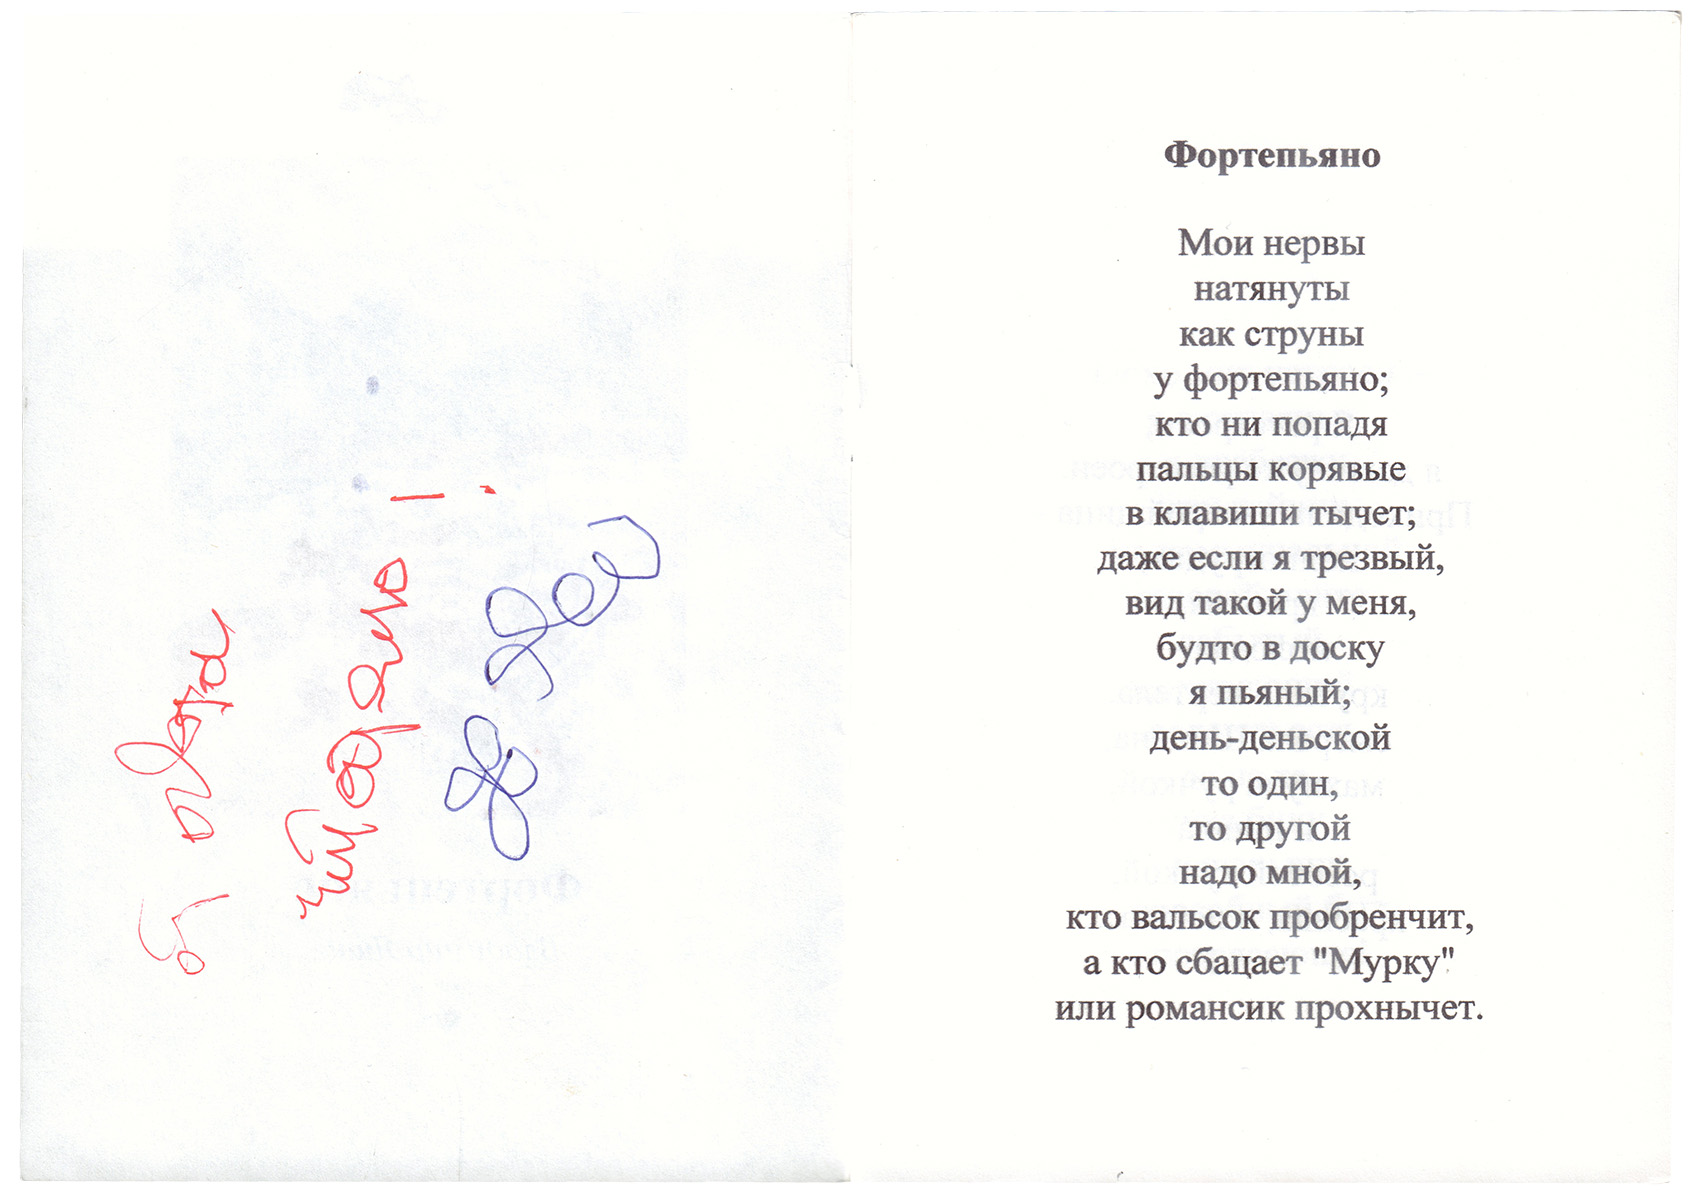 Фортепьяно
Мои нервы
натянуты
как струны
у фортепьяно;
кто ни попадя
пальцы корявые
в клавиши тычет;
даже если я трезвый,
вид такой у меня,
будто в доску
я пьяный;
день-деньской
то один,
то другой
надо мной,
кто вальсок пробренчит,
а кто сбацает "Мурку"
или романсик прохнычет.